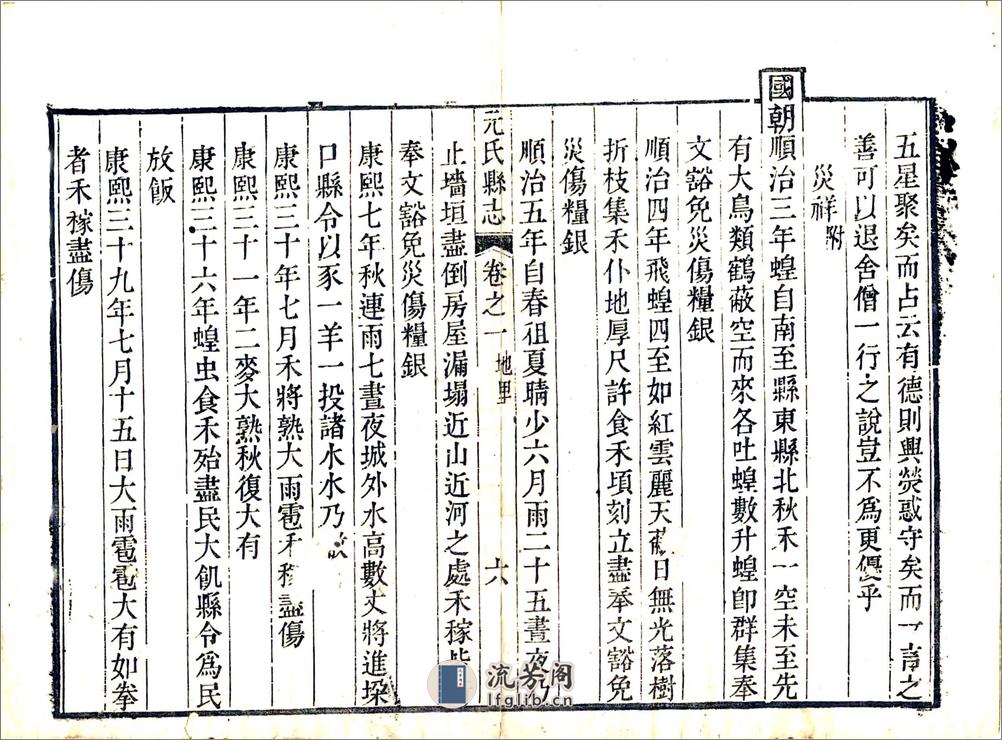 五星聚矣而占云有德則興熒惑守矣而一言之
善可以退舍僧一行之說豈不為更優乎
災祥附
國朝順治三年蝗自南至縣東縣北秋禾一空未至先
有大鳥類鶴蔽空而來各吐蝗數升蝗即群集奉
文豁免災傷糧銀
順治四年飛蝗四至如紅雲麗天蔽日無光落樹
折枝集禾仆地厚尺許食禾頃刻立盡奉文豁免
災傷糧銀
順治五年自春徂夏晴少六月雨二十五晝夜
元氏縣志 卷之一 地理 六
止墻垣盡倒房屋漏塌近山近河之處禾稼
奉文豁免災傷糧銀
康熙七年秋連雨七晝夜城外水高數丈將進垜
口縣令以豕一羊一投諸水水乃
康熙三十年七月禾將熟大雨雹禾稼盡傷
康熙三十一年二麥大熟秋復大有
康熙三十六年蝗虫食禾殆盡民大飢縣令為民
放飯
康熙三十九年七月十五日大雨雹雹大有如拳
者禾稼盡傷
流芳阁
lfglib.cn